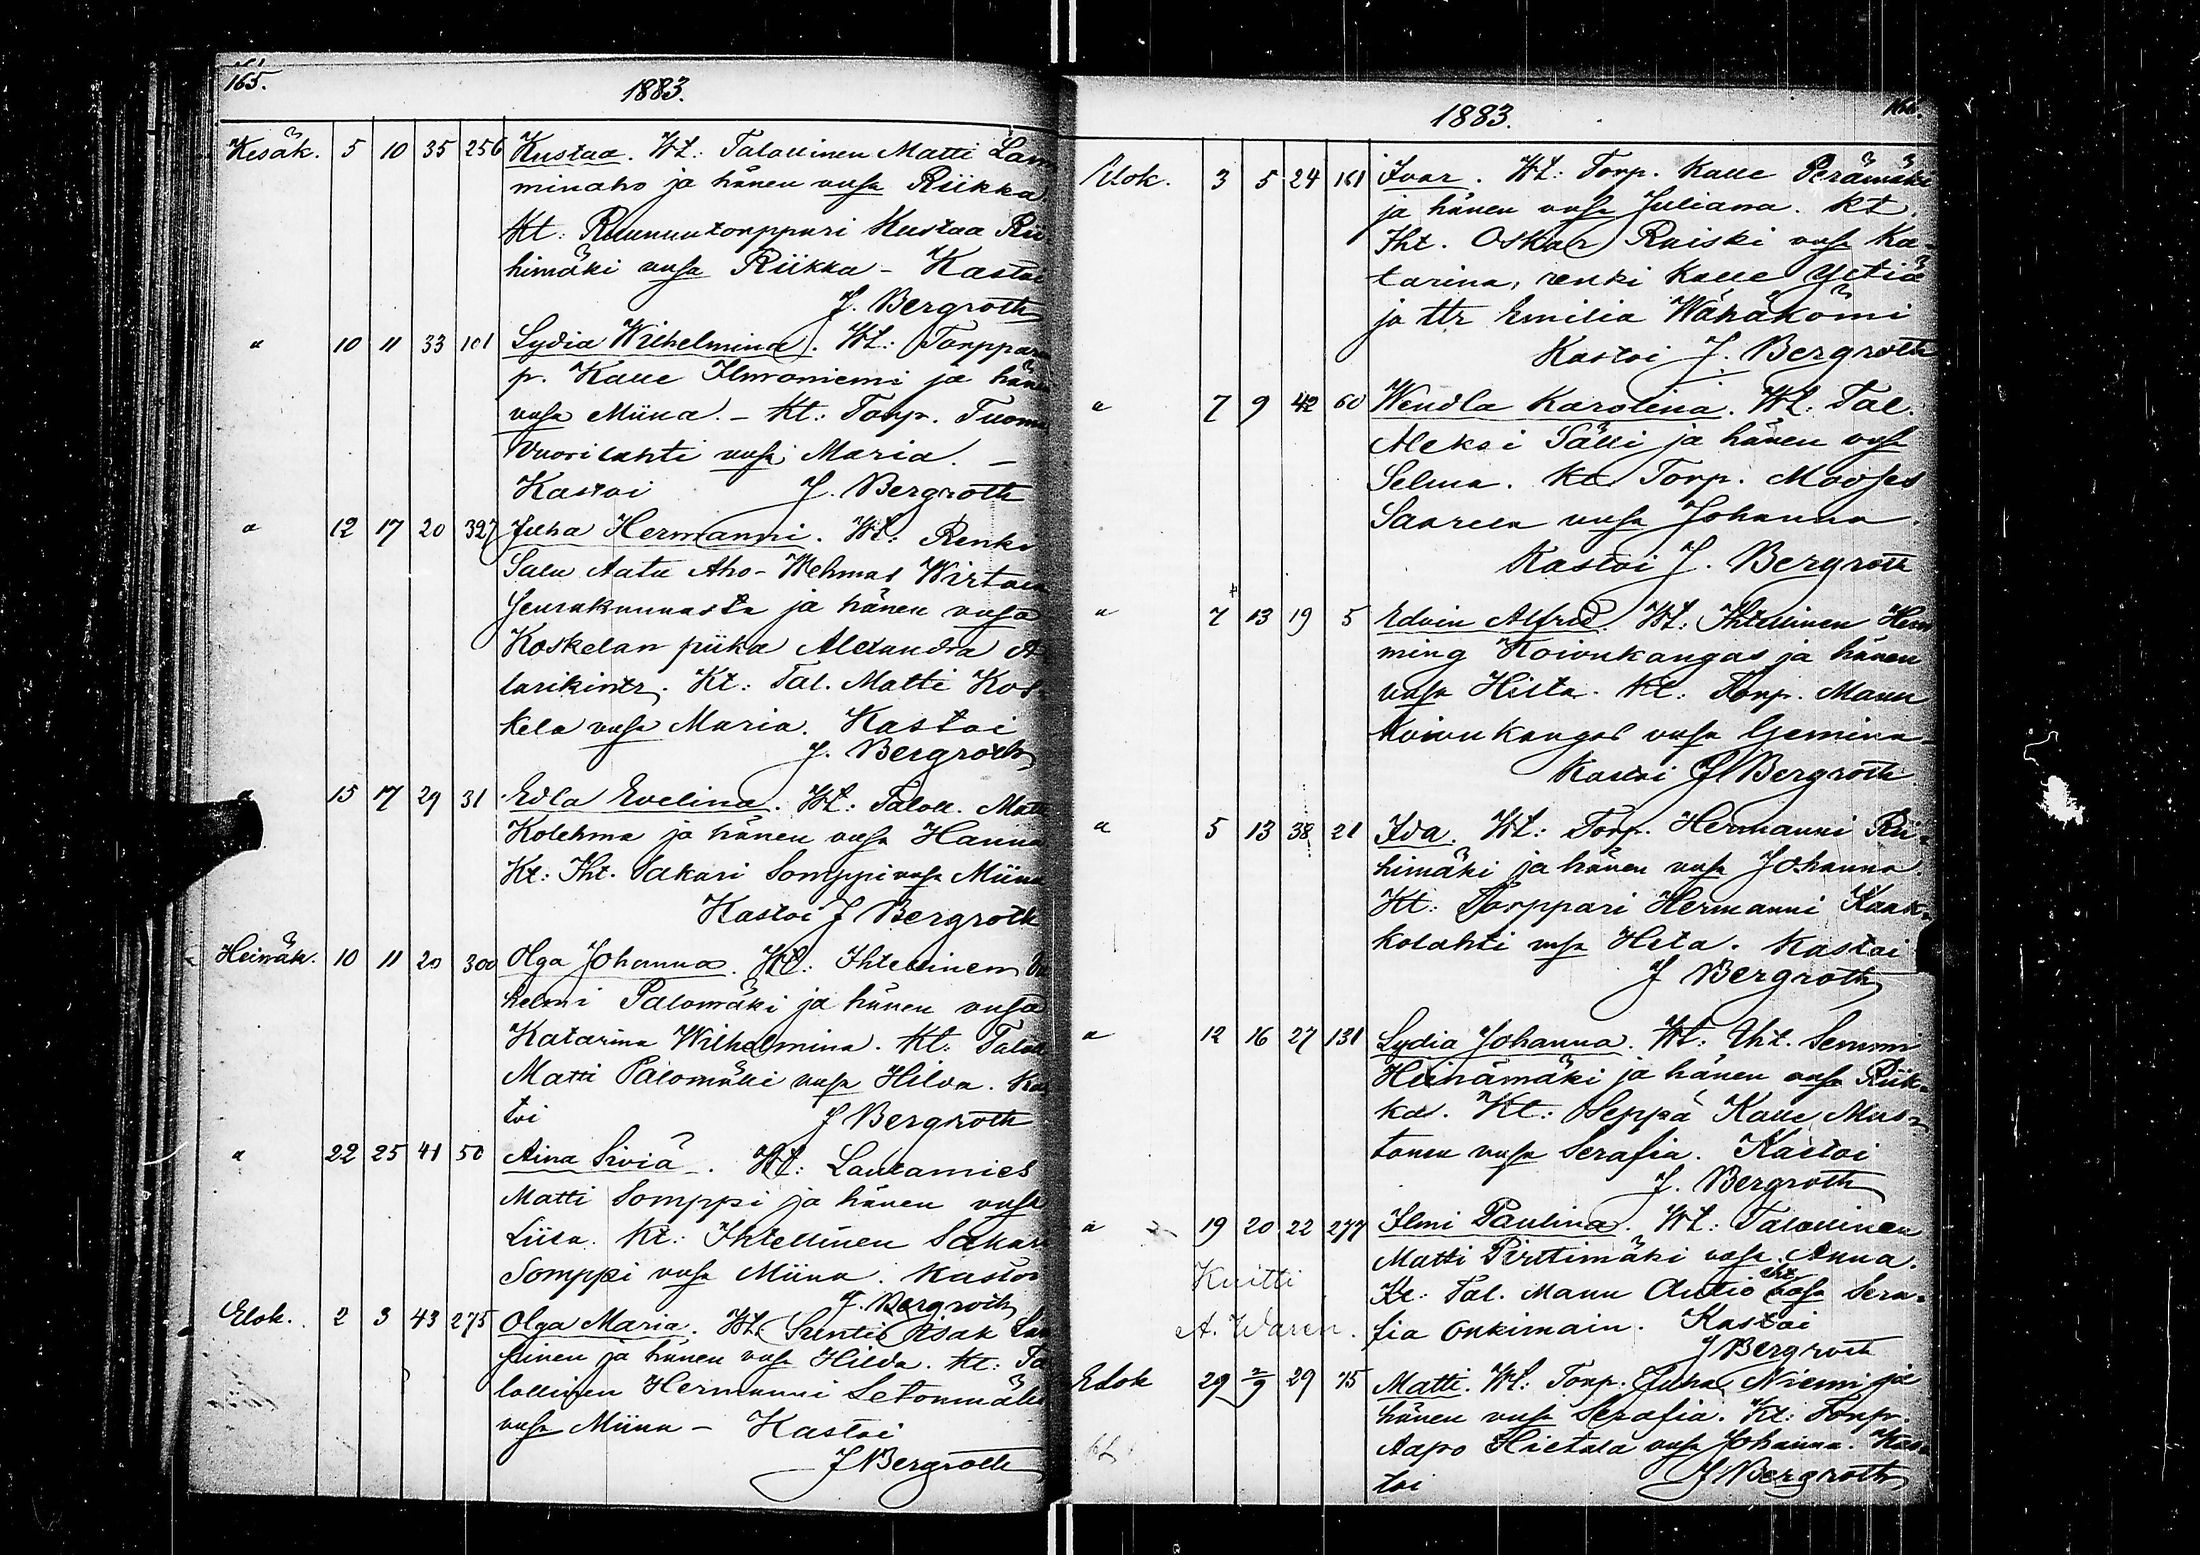 165.
1883.
Kesäk. 5 10 35 256 Kustaa. Wt: Talollinen Matti Lam
minaho ja hänen vmsa Riikka
Kt: Ruunun torppari Kustaa Rii
himäki vmsa Riikka - Kastoi
J. Bergroth
" 10 11 33 101 Lydia Wilhelmina. Wt: Torppari
p. Kalle Ilmoniemi ja hänen
vmsa Miina. - Kt: Torp. Tuomas
Vuorilahti vmsa Maria. -
Kastoi J. Bergroth
" 12 17 20 327 Juha Hermanni. Wt: Renki
Salu Aatu Aho - Wehmas Wirtain
Seurakunnasta ja hänen vmsa
Koskelan piika Alexandra A
larikintr. Kt: Tal. Matti Kos-
kela vmsa Maria. Kastoi
J. Bergroth
" 15 17 29 31 Edla Evelina. Wt: Taloll. Matti
Kolehma ja hänen vmsa Hanna
Kt: Iht. Sakari Somppi vmsa Miina
Kastoi J Bergroth
Heinäk. 10 11 20 300 Olga Johanna. Wt: Ihtellinen Wil
helmi Palomäki ja hänen vmsa
Katarina Wilhelmina. Kt: Taloll
Matti Palomäki vmsa Hilda. Kas
toi J Bergroth
" 22 25 41 50 Aina Siviä. Wt: Lautamies
Matti Somppi ja hänen vmsa
Liisa. Kt: Ihtellinen Sakari
Somppi vmsa Miina. Kastoi
J. Bergroth
Elok. 2 3 43 275 Olga Maria. Wt: Suntio Isak Las
sinen ja hänen vmsa Hilda. Kt: Ta
lollinen Hermanni Setonmäki
vmsa Miina - Kastoi
J Bergroth
166.
1883.
Elok. 3 5 24 161 Ivar. Wt: Torp. Kalle Perämäki
ja hänen vmsa Juliana. Kt.
Iht. Oskar Raiski vmsa Ka-
tarina, renki Kalle Yltiä
ja ttr Emilia Wähäkömi
Kastoi J. Bergroth
" 7 9 42 60 Wendla Karolina. Wt: Tal.
Aleksi Sälli ja hänen vmsa
Selma. Kt Torp. Mooses
Saarela vmsa Johanna.
Kastoi J. Bergroth
" 7 13 19 5 Edvin Alfred. Wt: Ihtellinen Hem
ming Koivukangas ja hänen
vmsa Hilta. Kt: Torp. Manu
Koivukangas vmsa Gemina-
Kastoi J Bergroth
" 5 13 38 21 Ida. Wt: Torp. Hermanni Rii-
himäki ja hänen vmsa Johanna.
Kt: Torppari Hermanni Kaak-
kolahti vmsa Heta. Kastoi
J Bergroth
" 12 16 27 131 Lydia Johanna. Wt: Iht. Semmi
Heinämäki ja hänen vmsa Riik-
ka. Kt: Seppä Kalle Mus-
tonen vmsa Serafia. Kastoi
J. Bergroth
" 19 20 22 277 Ilmi Paulina. Wt: Talollinen
Matti Pirttimäki vmsa Anna.
Kuitti
Kt: Tal. Manu Autio vmsa Sera-
A. Waren. fia Onkimain. Kastoi
J Bergroth
Elok 29 2/9 29 75 Matti. Wt: Torp. Juha Niemi ja
hänen vmsa Serafia. Kt: Torp.
Aapo Hietala vmsa Johanna. Kas
toi J Bergroth